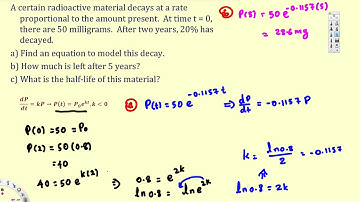 A certain radioactive material decays at a rate
proportional to the amount present. At time t = 0,
there are 50 milligrams. After two years, 20% has
decayed.
a) Find an equation to model this decay.
b) How much is left after 5 years?
c) What is the half-life of this material?
dP/dt = kP → P(t) = P₀e^{kt}, k < 0
P(0) = 50 = P₀
P(2) = 50(0.8)
= 40
40 = 50 e^{k(2)}
⇒ 0.8 = e^{2k}
ln 0.8 = ln e^{2k}
ln 0.8 = 2k
k = ln 0.8 / 2 = -0.1157
a) P(t) = 50 e^{-0.1157 t} ⇒ dP/dt = -0.1157 P
b) P(5) = 50 e^{-0.1157(5)}
= 28.6 mg